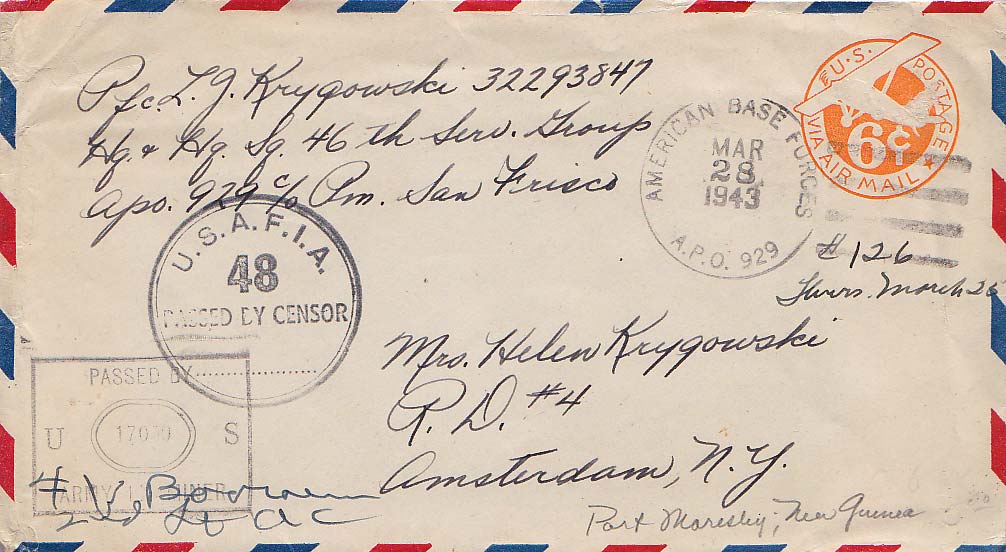 Pfc L. J. Krygowski 32293847
Hq. & Hq. Sq. 46th Serv. Group
Apo. 929 c/o Pm. San Frisco
U.S. POSTAGE
6¢
VIA AIR MAIL
AMERICAN BASE FORCES
MAR
28
1943
A.P.O. 929
#126
Thurs. March 25
U.S.A.F.I.A.
48
PASSED BY CENSOR
Mrs. Helen Krygowski
R. D. #4
Amsterdam, N.Y.
PASSED BY
U S
ARMY EXAMINER
2nd Lt AC
Port Moresby, New Guinea